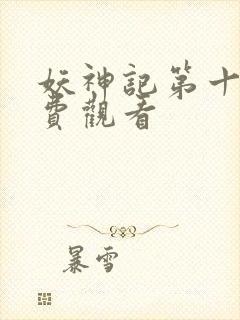 妖神記第十
費觀看
暴雪